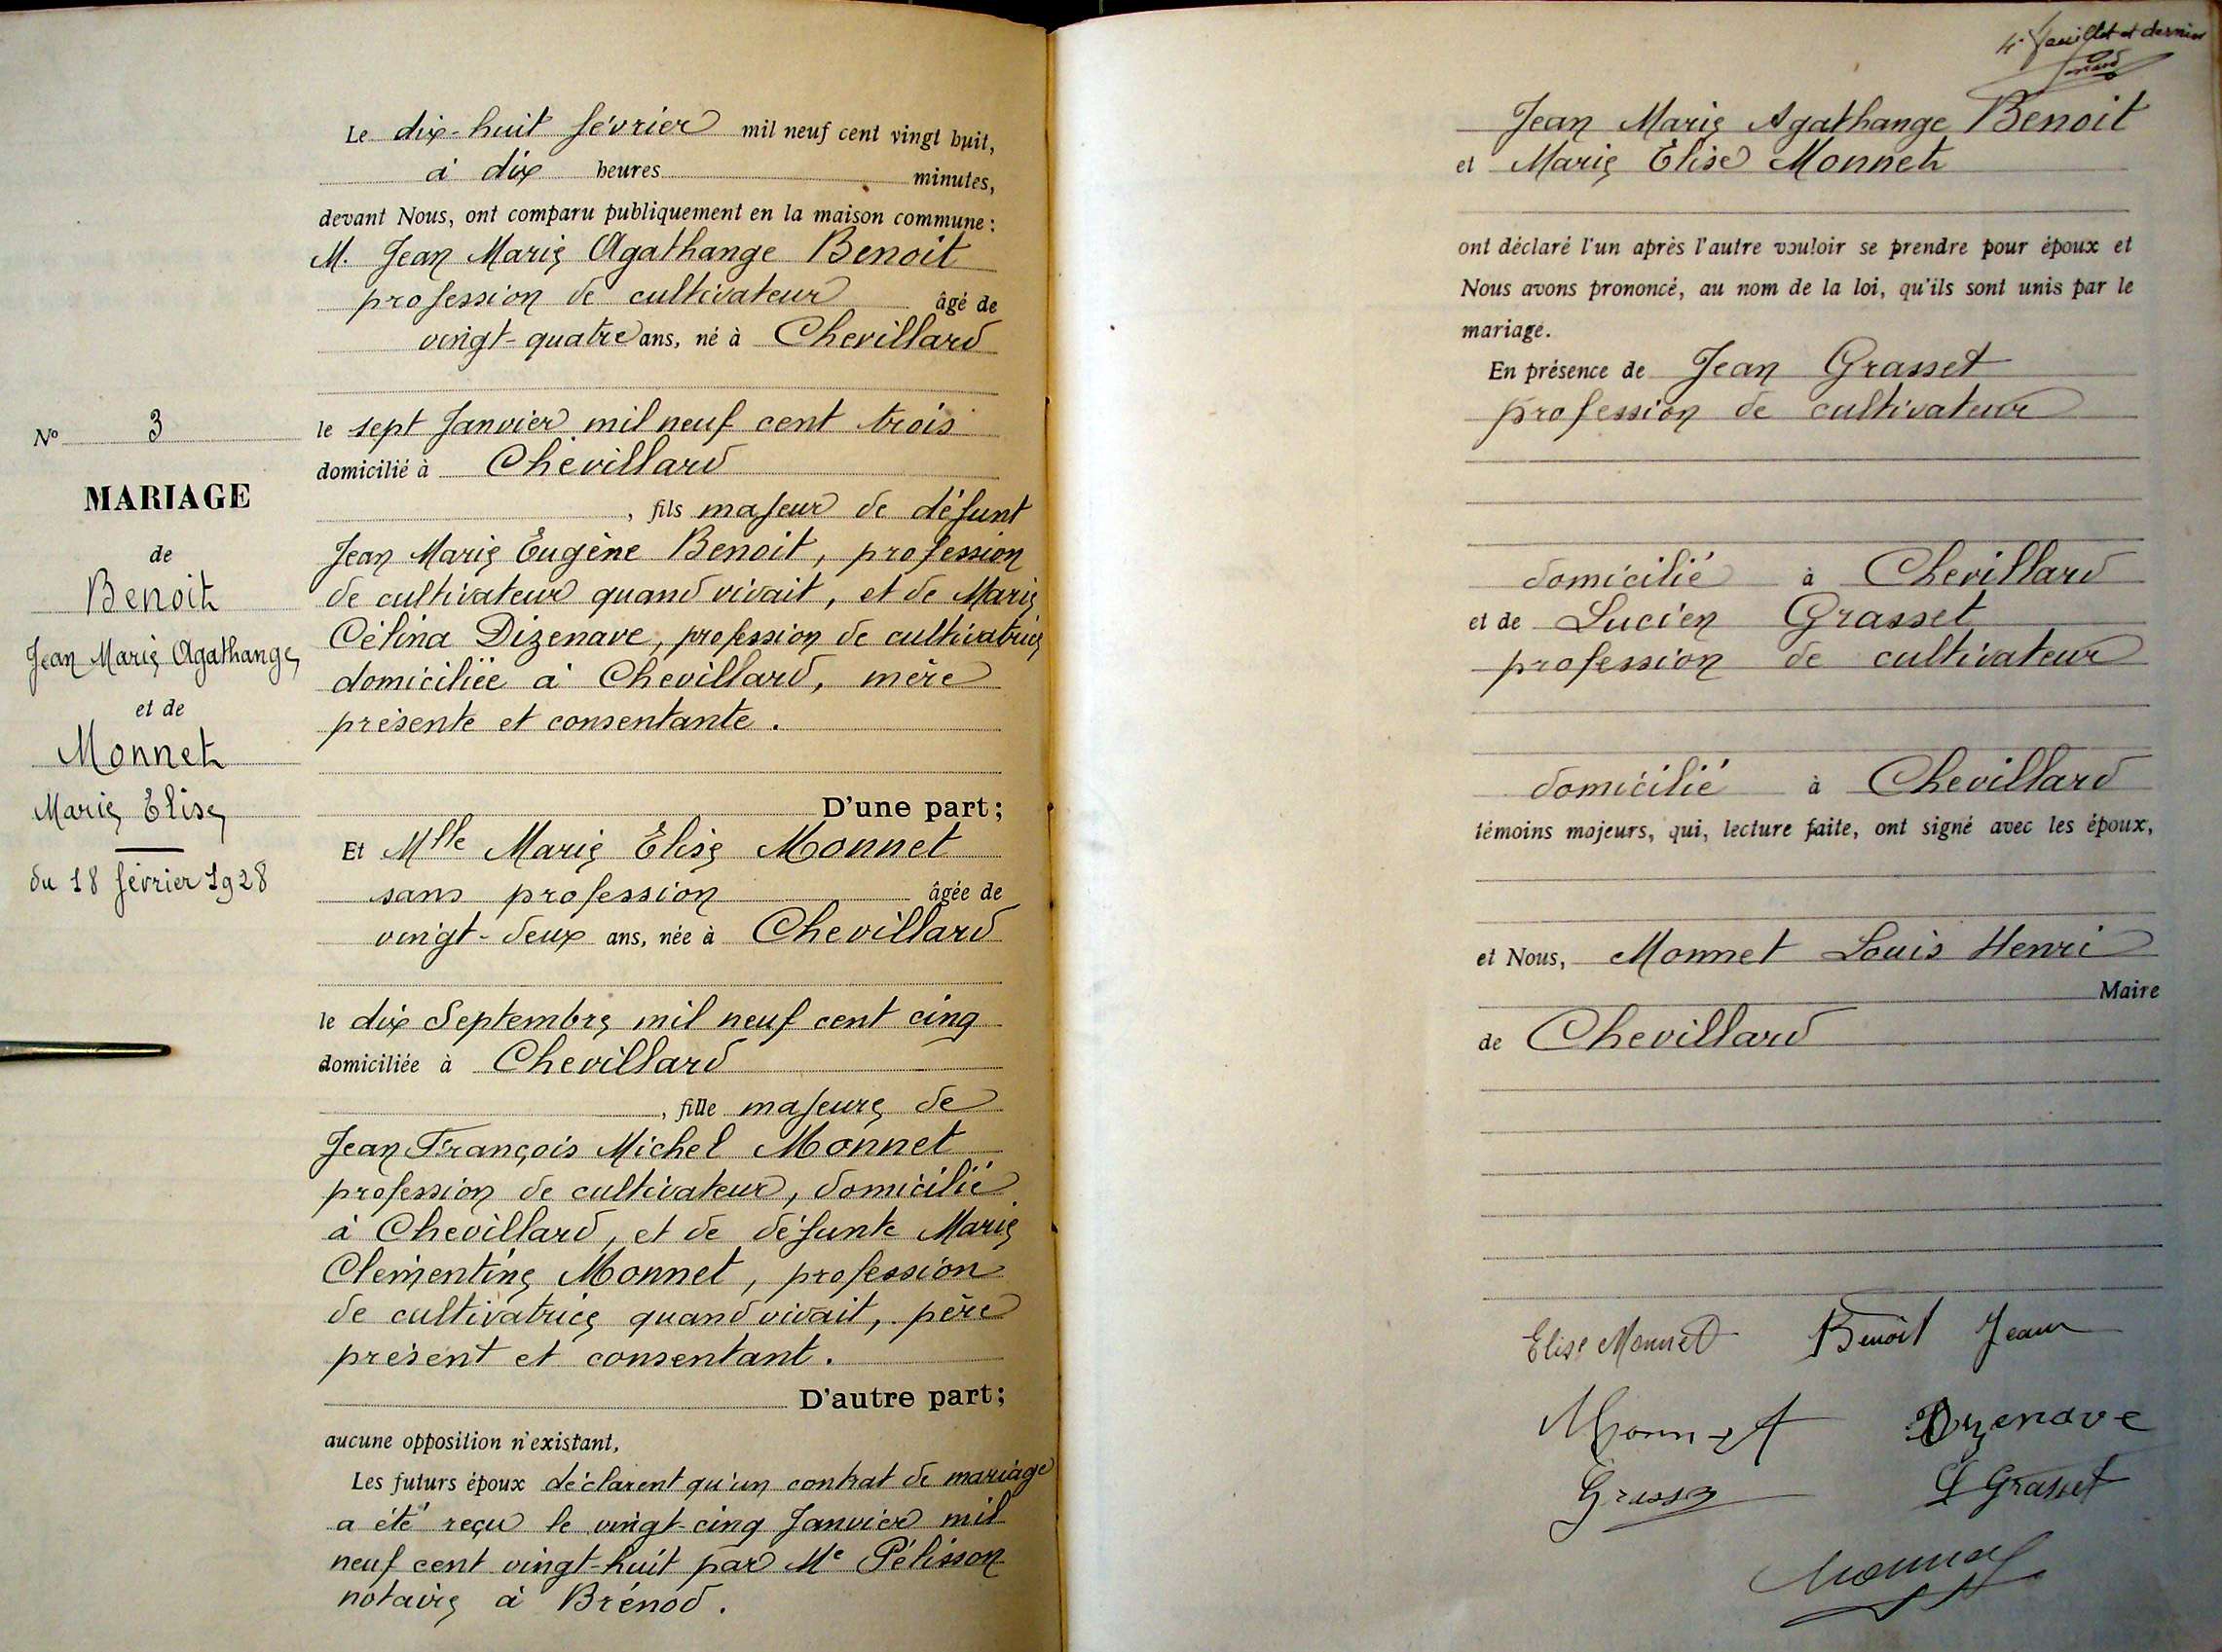 Le dix-huit février mil neuf cent vingt huit,
à dix heures minutes,
devant Nous, ont comparu publiquement en la maison commune :
M. Jean Marie Agathange Benoit
profession de cultivateur âgé de
vingt-quatre ans, né à Chevillard
le sept Janvier mil neuf cent trois
domicilié à Chevillard
, fils majeur de défunt
Jean Marie Eugène Benoit, profession
de cultivateur quand vivait, et de Marie
Célina Dizenave, profession de cultivatrice
domiciliée à Chevillard, mère
présente et consentante.
D'une part;
Et Mlle Marie Elise Monnet
sans profession âgée de
vingt-deux ans, née à Chevillard
le dix Septembre mil neuf cent cinq
domiciliée à Chevillard
, fille majeure de
Jean François Michel Monnet
profession de cultivateur, domicilié
à Chevillard, et de défunte Marie
Clémentine Monnet, profession
de cultivatrice quand vivait, père
présent et consentant.
D'autre part;
aucune opposition n'existant,
Les futurs époux déclarent qu'un contrat de mariage
a été reçu le vingt-cinq Janvier mil
neuf cent vingt-huit par Me Pélisson
notaire à Brénod.
No 3
MARIAGE
de
Benoit
Jean Marie Agathange
et de
Monnet
Marie Elise
du 18 février 1928
4e feuillet et dernier
Jean Marie Agathange Benoit
et Marie Elise Monnet
ont déclaré l'un après l'autre vouloir se prendre pour époux et
Nous avons prononcé, au nom de la loi, qu'ils sont unis par le
mariage.
En présence de Jean Grasset
profession de cultivateur
domicilié à Chevillard
et de Lucien Grasset
profession de cultivateur
domicilié à Chevillard
témoins majeurs, qui, lecture faite, ont signé avec les époux,
et Nous, Monnet Louis Henri
Maire
de Chevillard
Elise Monnet Benoit Jean
Monnet Dyzenave
Grasset L Grasset
Monnet